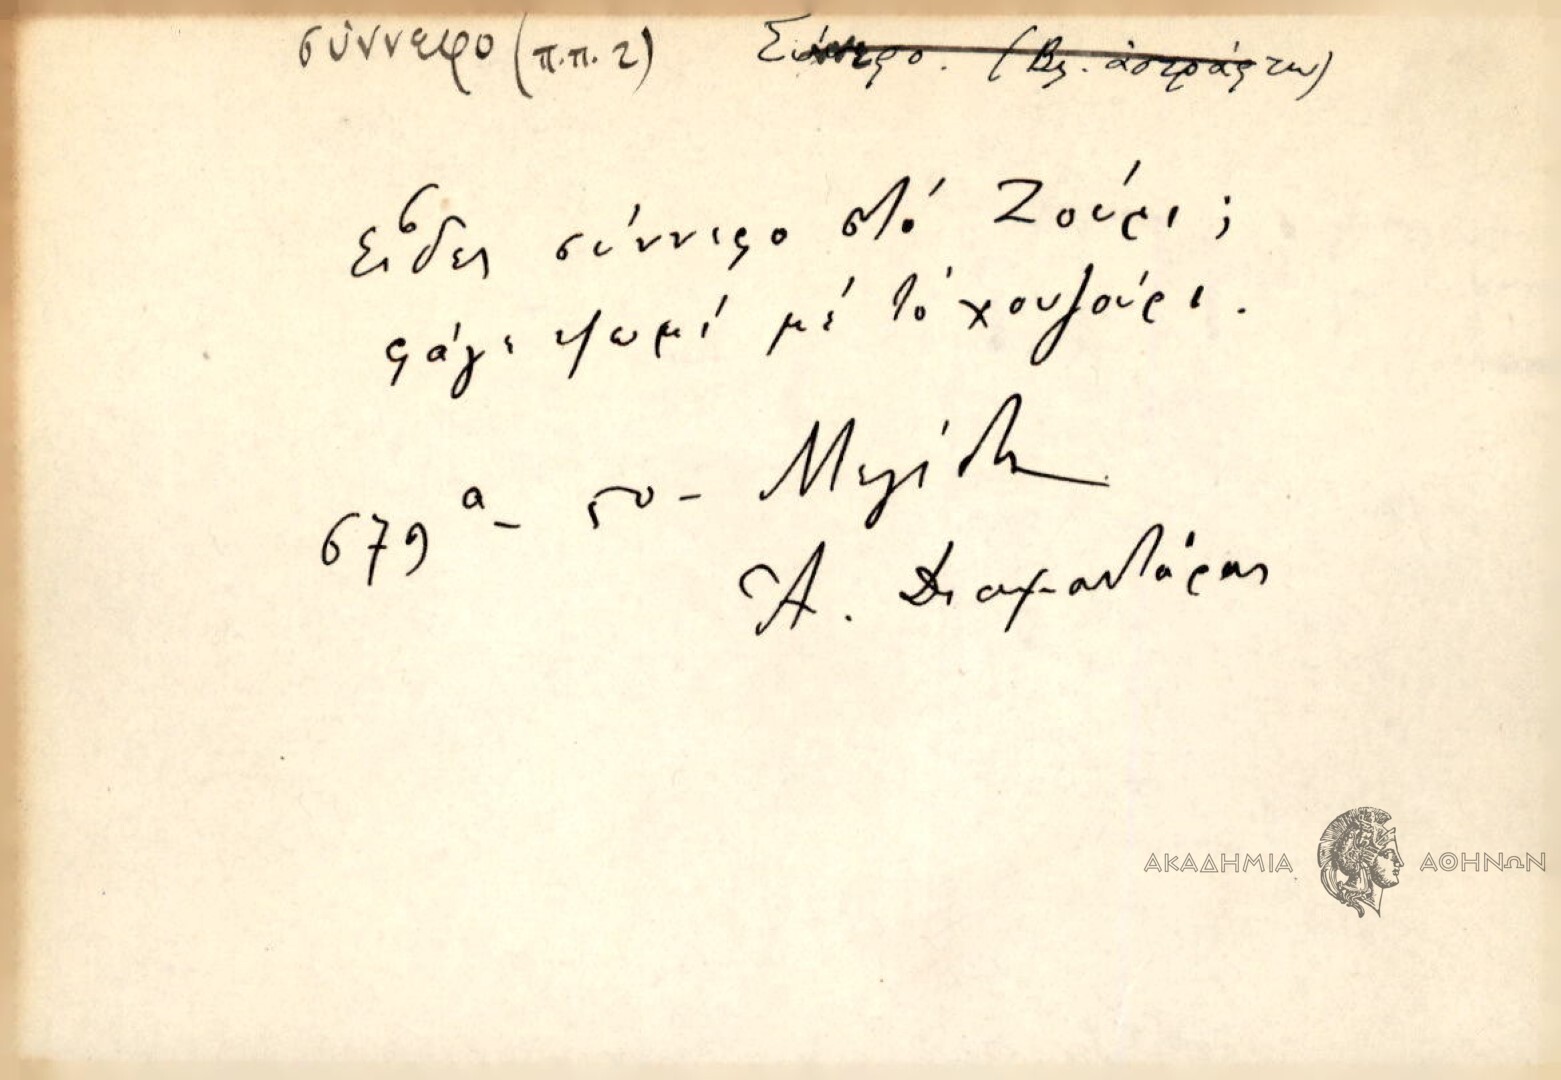 σύννεφο (π.π. 2) Σύννεφο. (Βλ. ἀστράφτω)
Εἶδες σύννεφο στὸ Ζούρι;
φάγε ψωμὶ μὲ τὸ χουζούρι.
679α – 50 – Μεγίστη
Ἀ. Διαμαντάρας
ΑΚΑΔΗΜΙΑ ΑΘΗΝΩΝ